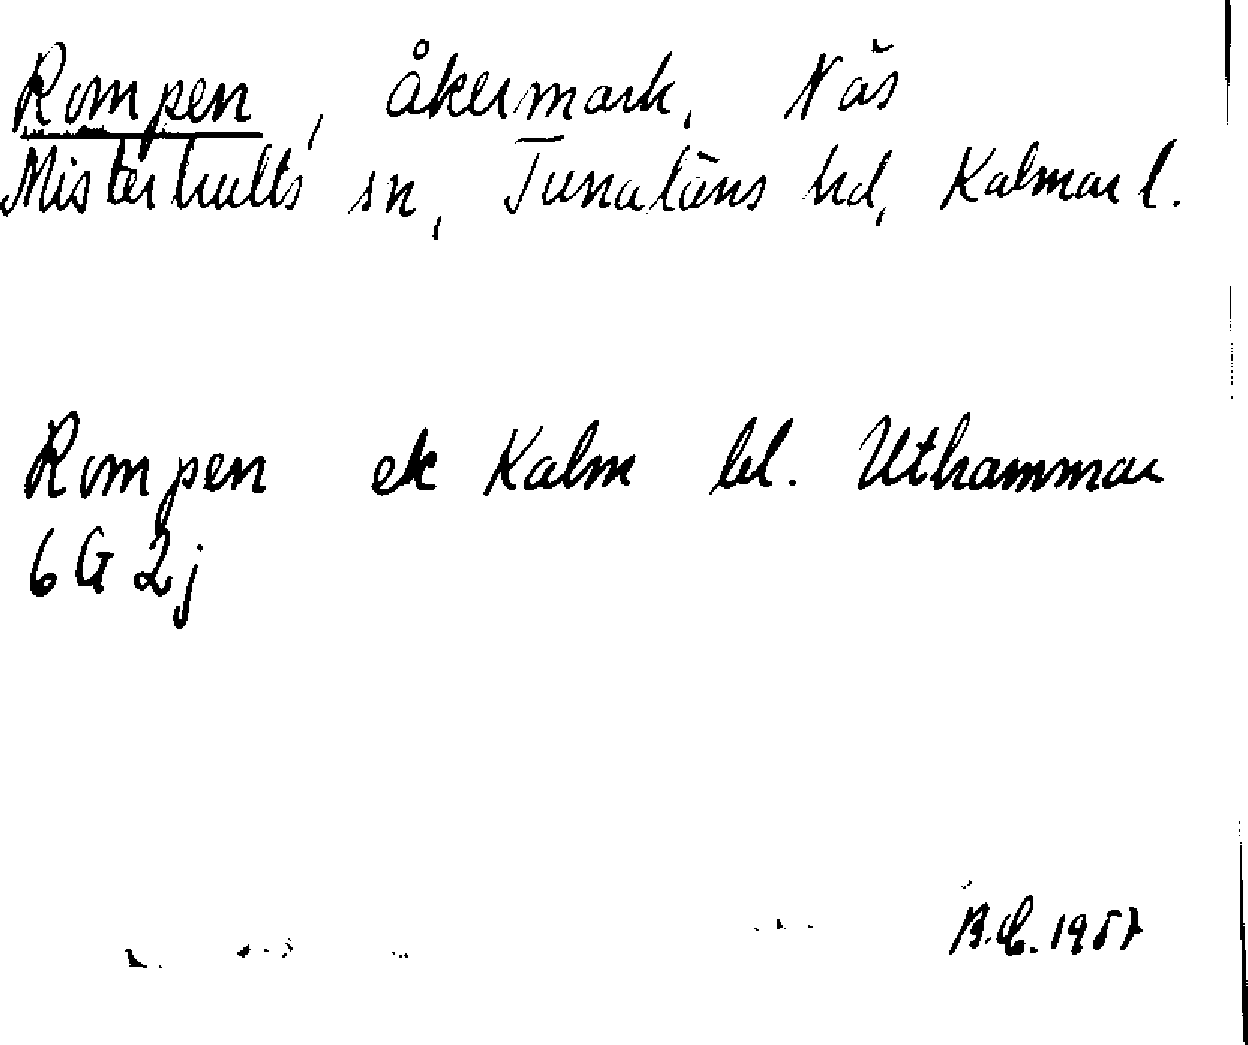 Rompen, åkermark, Näs
Misterhults sn, Tunaläns hd, Kalmar l.
Rompen ek Kalm bl. Uthammar
6 G 2j
1957